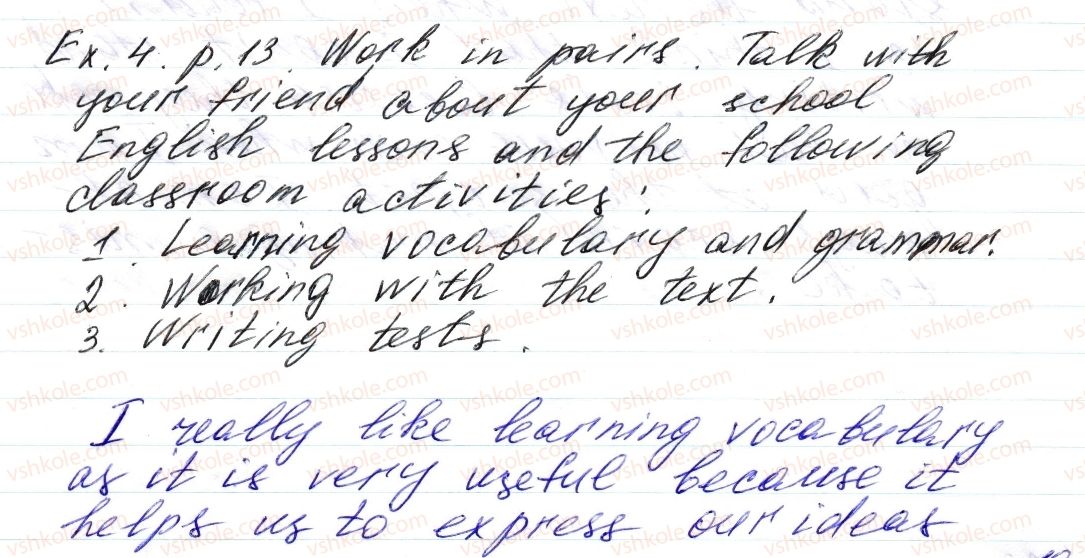 Ex. 4. p. 13. Work in pairs. Talk with
your friend about your school
English lessons and the following
classroom activities:
1. Learning vocabulary and grammar.
2. Working with the text.
3. Writing tests.
I really like learning vocabulary
as it is very useful because it
helps us to express our ideas